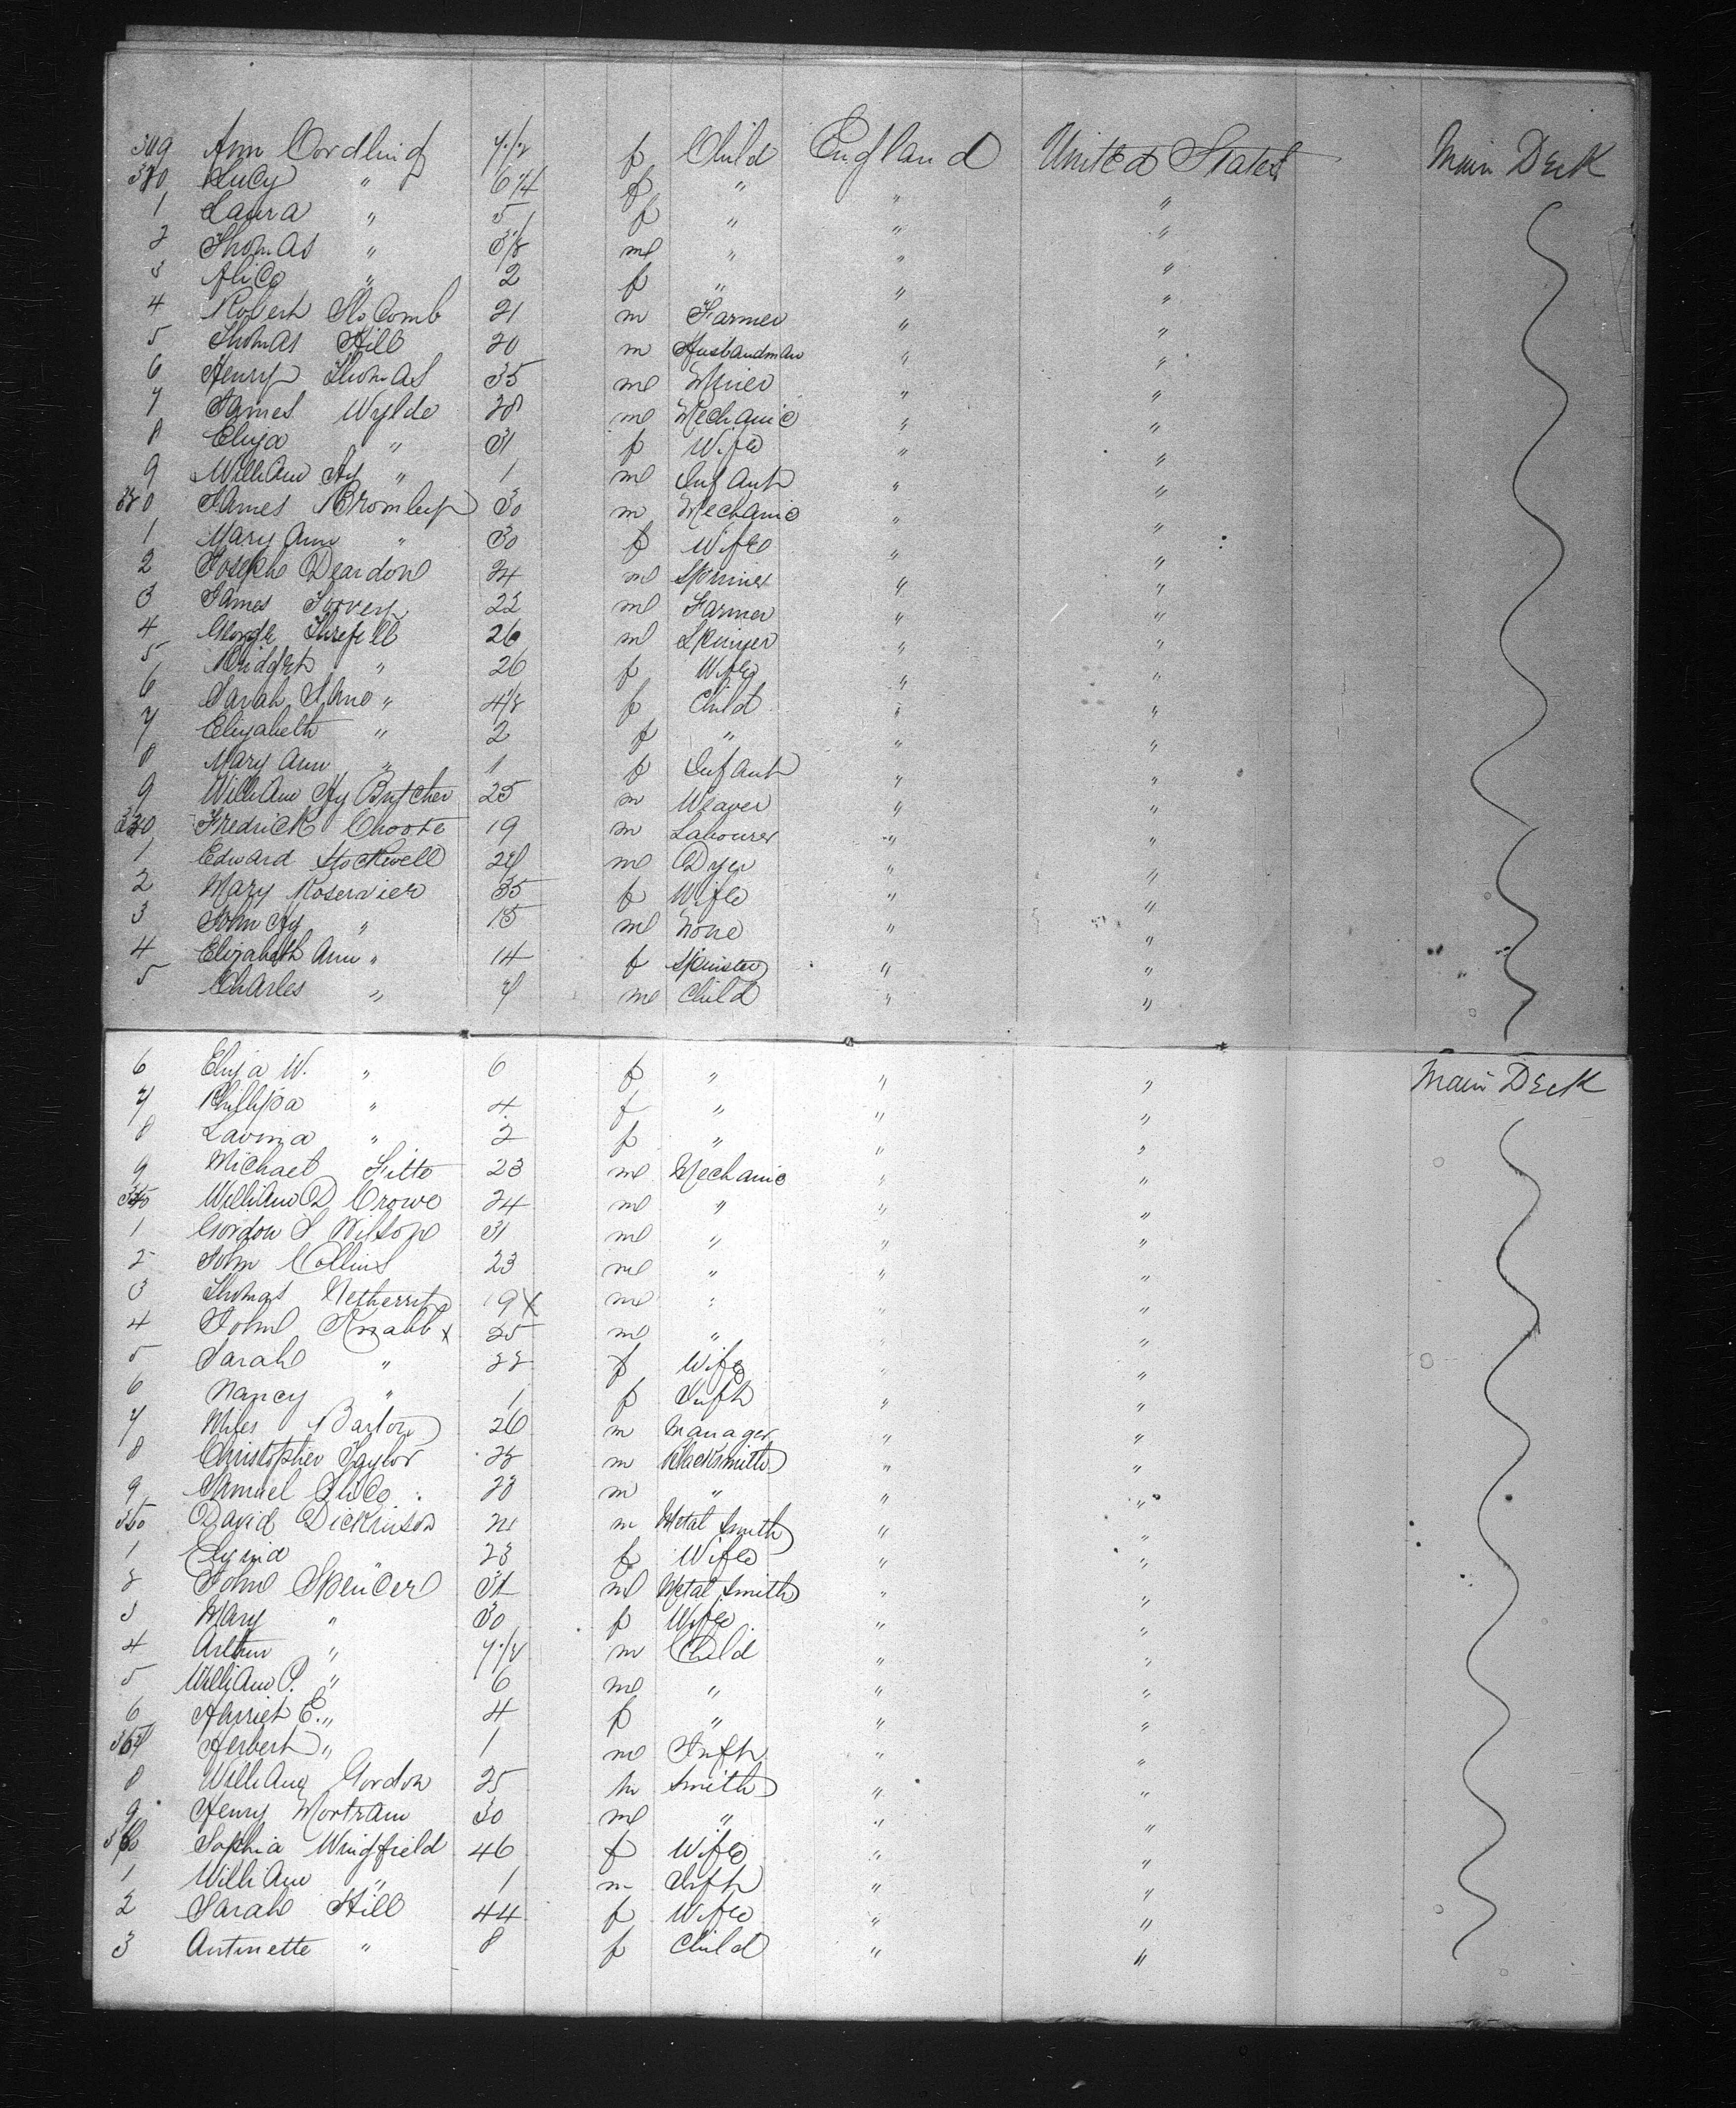 309 Ann Cordling 7 1/2 f Child England United States Main Deck
310 Lucy " 6 1/4 f " " "
1 Laura " 5 f " " "
2 Thomas " 3/8 m " " "
3 Alice " 2 f " " "
4 Robert Slocomb 21 m Farmer " "
5 Thomas Hill 20 m Husbandman " "
6 Henry Thomas 35 m Miner " "
7 James Wylde 28 m Mechanic " "
8 Eliza " 31 f Wife " "
9 William Hy " 1 m Infant " "
320 James Bromley 30 m Mechanic " "
1 Mary Ann " 30 f Wife " "
2 Joseph Deardon 24 m Spinner " "
3 James 22 m Farmer " "
4 George Threfell 26 m Spinner " "
5 Bridget " 26 f Wife " "
6 Sarah Jane " 4/8 f Child " "
7 Elizabeth " 2 f " " "
8 Mary Ann " 1 f Infant " "
9 William Hy Butcher 25 m Weaver " "
330 Fredrick Choote 19 m Labourer " "
1 Edward Stockwell 24 m Dyer " "
2 Mary Roservier 35 f Wife " "
3 John Hy " 15 m None " "
4 Elizabeth Ann " 14 f Spinster " "
5 Charles " 7 m Child " "
6 Eliza W. " 6 f " " " Main Deck
7 Phillipa " 4 f " " "
8 Lavinia " 2 f " " "
9 Michael Fitte 23 m Mechanic " "
340 William D Crowe 24 m " " "
1 Gordon S Wilson 31 m " " "
2 John Collins 23 m " " "
3 Thomas Netherry 19 x m " " "
4 John Knabb x 25 m " " "
5 Sarah " 22 f Wife " "
6 Nancy " 1 f Inft " "
7 Miles Barton 26 m Manager " "
8 Christopher Taylor 28 m Blacksmith " "
9 Samuel 28 m " " "
350 David Dickinson 21 m Metal Smith " "
1 " 23 f Wife " "
2 John Spencer 31 m Metal Smith " "
3 Mary " 30 f Wife " "
4 Arthur " 7 1/2 m Child " "
5 William P. " 6 m " " "
6 Harriet E. " 4 f " " "
357 Herbert " 1 m Inft " "
8 William Gordon 25 m Smith " "
9 Henry Mortram 30 m " " "
360 Sophia Wingfield 46 f Wife " "
1 William " 1 m Inft " "
2 Sarah Hill 44 f Wife " "
3 Antinette " 8 f Child " "